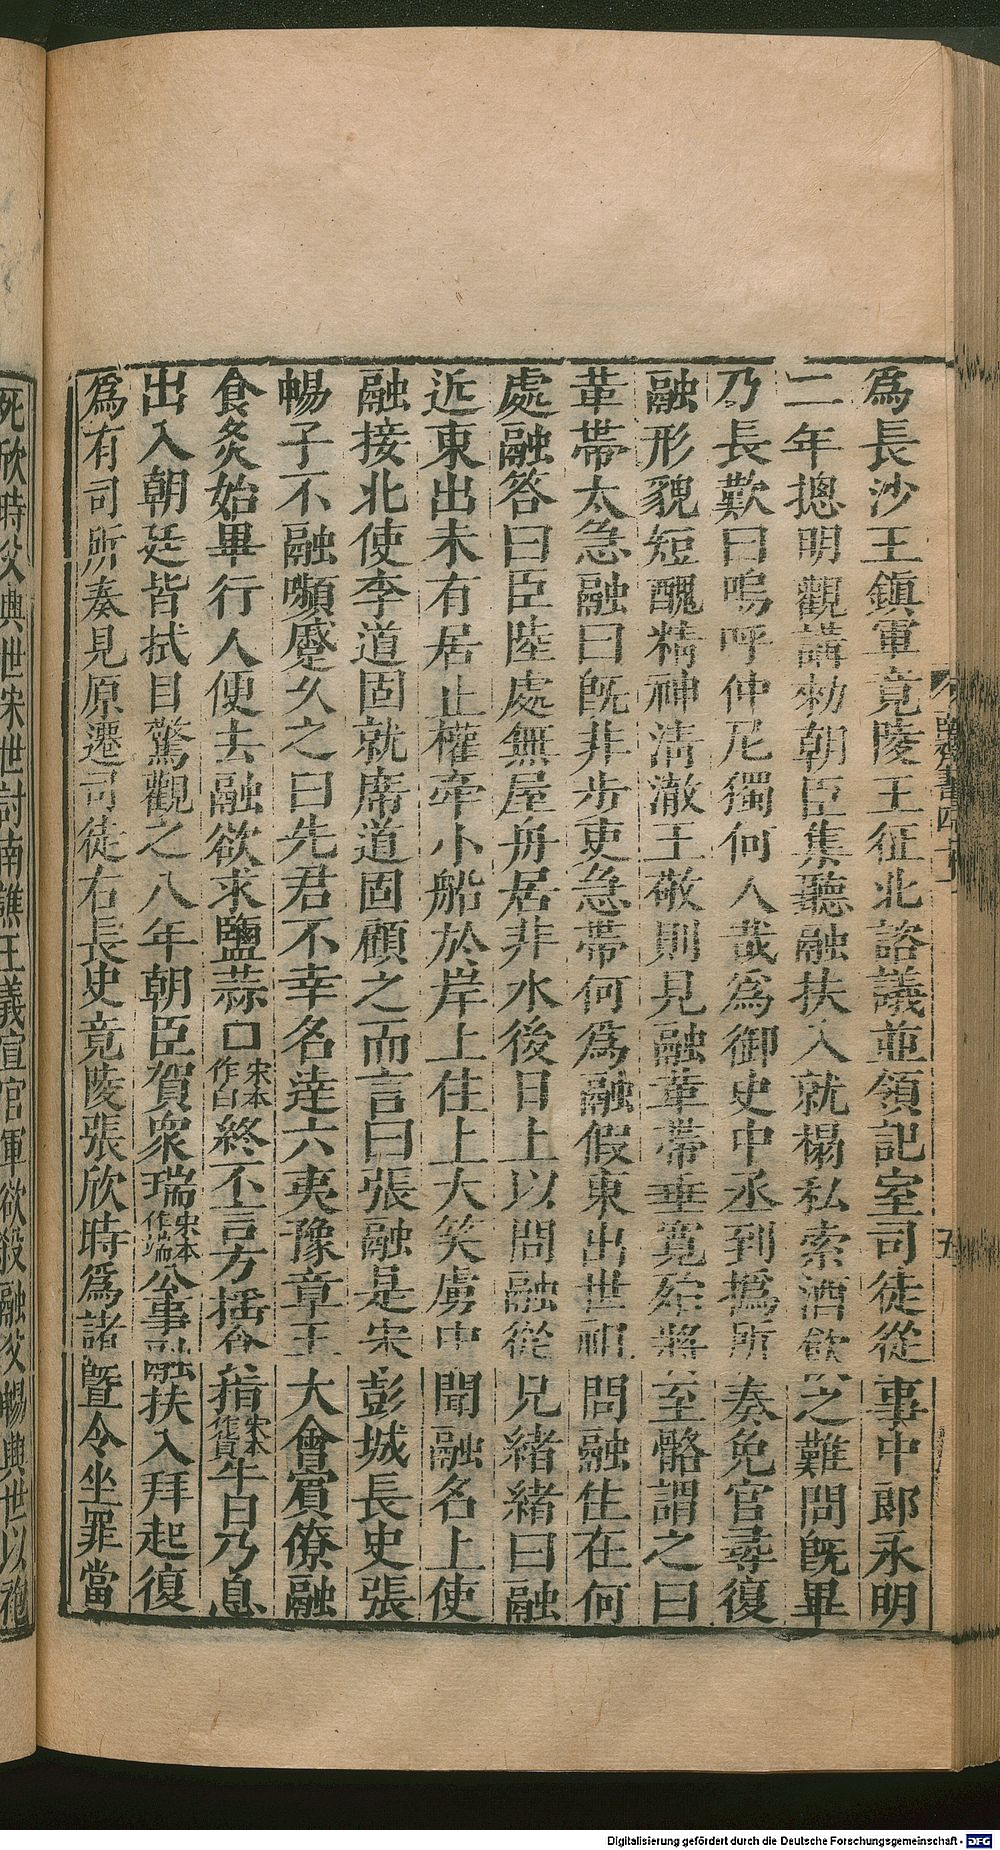 爲長沙王鎮軍竟陵王征北諮議並領記室司徒從事中郎永明
二年摠明觀講勑朝臣集聽融扶入就榻私索酒飮之難問旣畢
乃長歎曰嗚呼仲尼獨何人哉爲御史中丞到撝所奏免官尋復
融形貌短醜精神淸澈王敬則見融革帶垂寛殆將至骼謂之曰
革帶太急融曰旣非步吏急帶何爲融假東出世祖問融住在何
處融答曰臣陸處無屋舟居非水後日上以問融從兄緒緒曰融
近東出未有居止權牽小船於岸上住上大笑虜中聞融名上使
融接北使李道固就席道固顧之而言曰張融是宋彭城長史張
暢子不融嚬蹙久之曰先君不幸名達六夷豫章王大會賓僚融
食炙始畢行人便去融欲求鹽蒜口宋本作白終不言方搖食指宋本作貟半日乃息
出入朝廷皆拭目驚觀之八年朝臣賀衆瑞宋本作端公事融扶入拜起復
爲有司所奏見原遷司徒右長史竟陵張欣時爲諸曁令坐罪當
死欣時父興世宋世討南譙王義宣官軍欲殺融父暢興世以袍
南齊書四十一
五
Digitalisierung gefördert durch die Deutsche Forschungsgemeinschaft - DFG